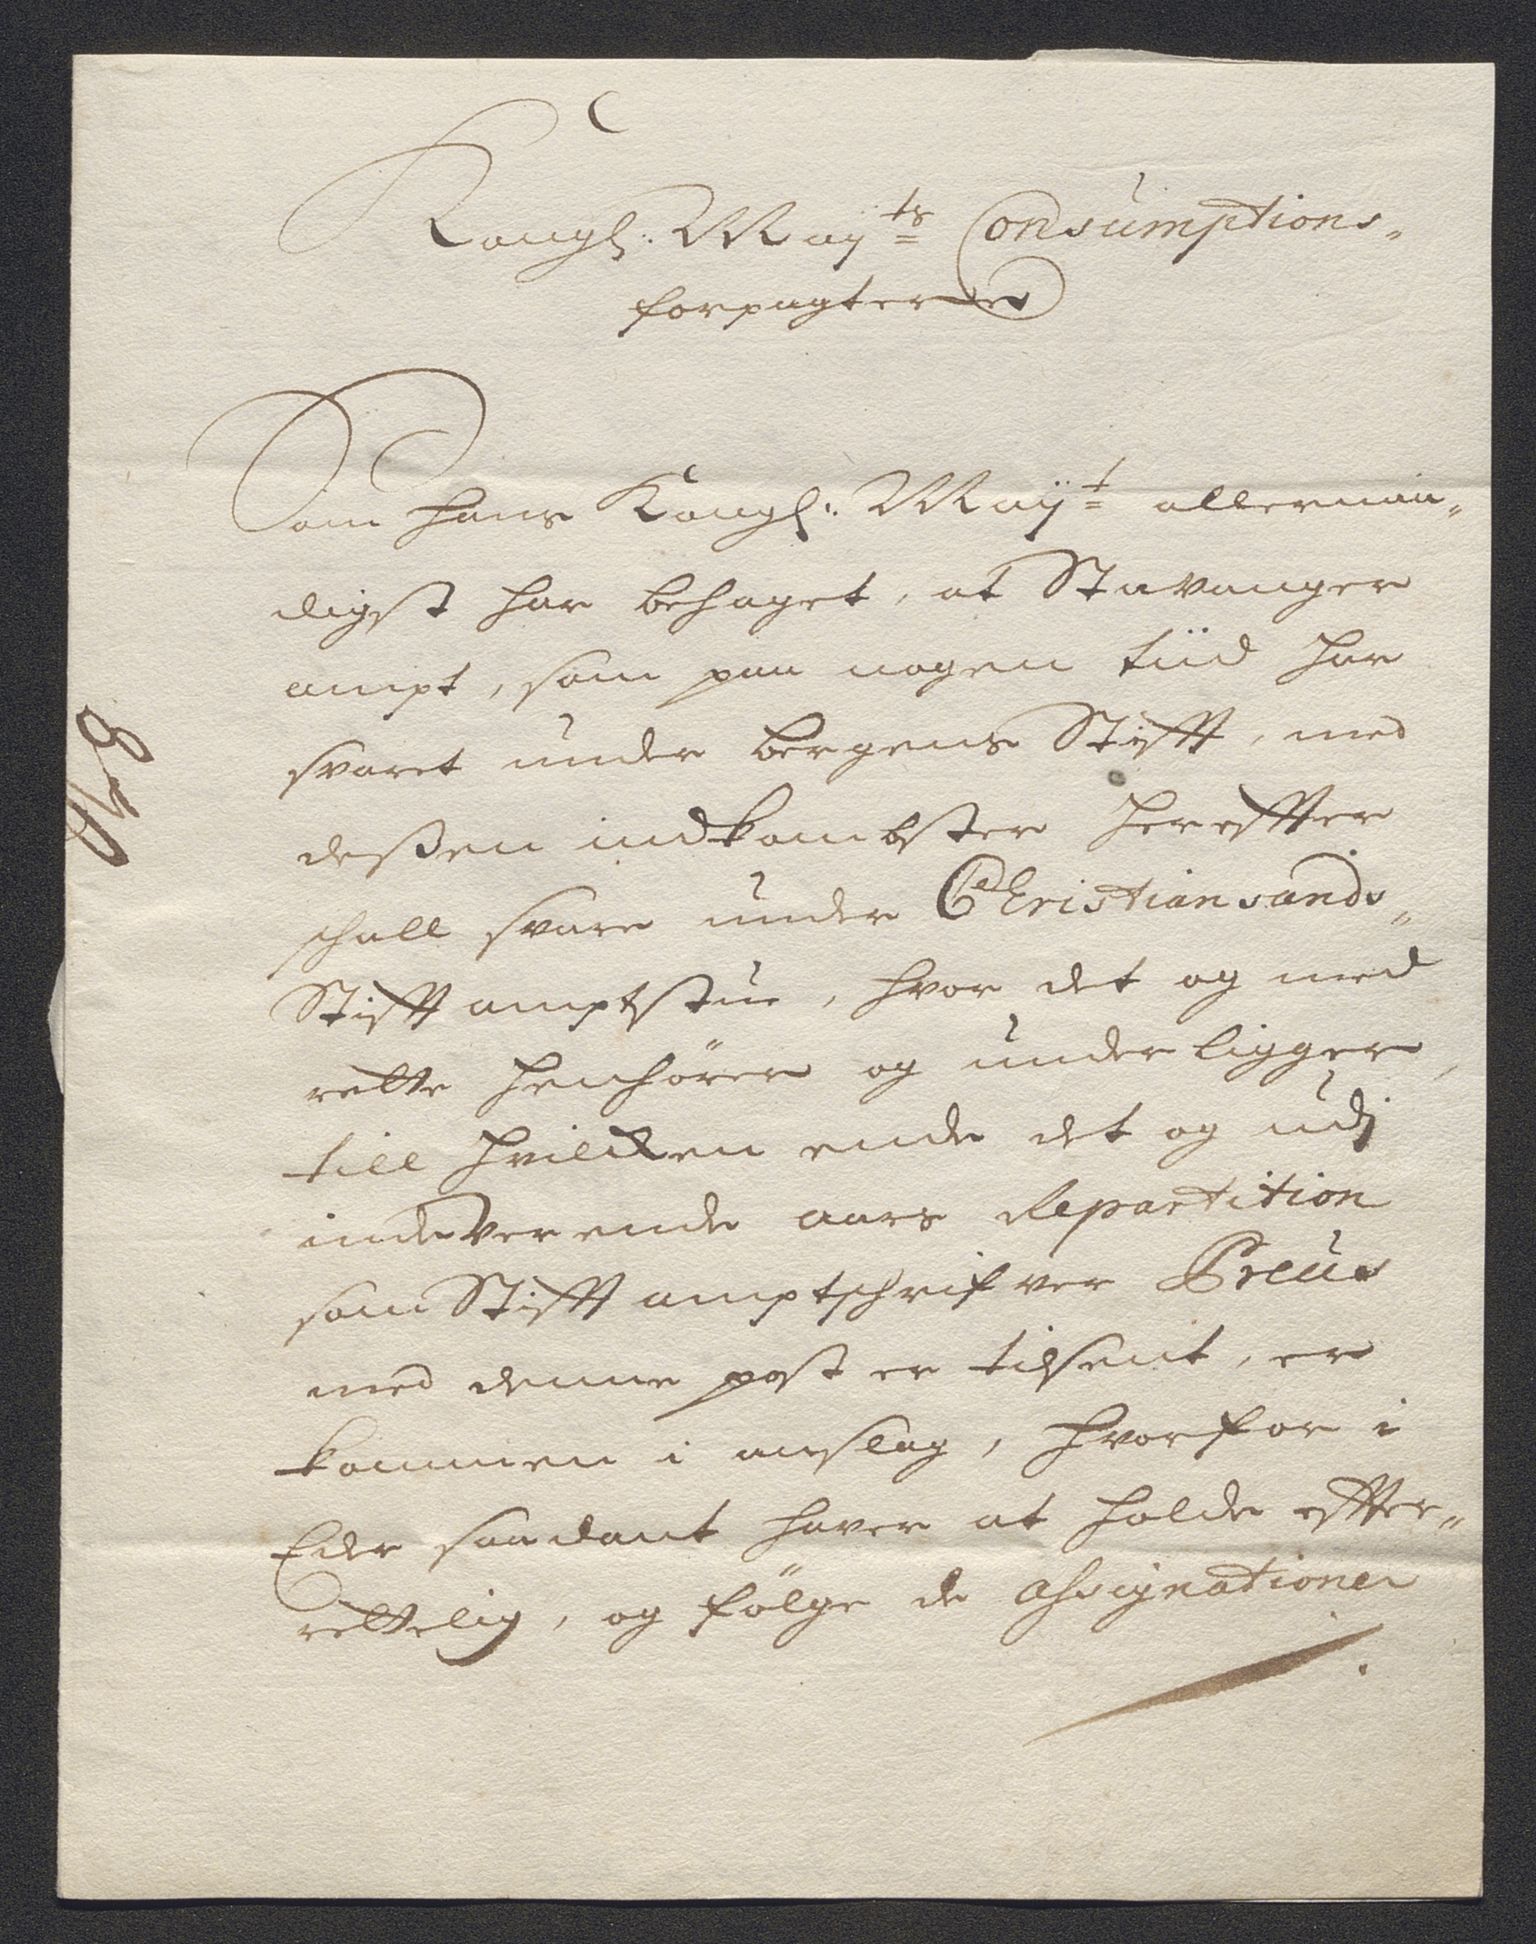 Kongl: Mayts Consumptions-
forpagtere
Som Hans Kongl: Mayt allernaa-
digst har behaget, at Stavanger
ampt, som paa nogen tiid har
svaret under Bergens Stifft, med
deßen indkombster herefter
schall svare under Christiansands-
Stifft amptstue, hvor det og med
rette henhörer og under ligger,
till hvilcken ende det og udj
indeverende aars Repartition
som Stifft amptschrifver Preus
med denne post er tilsent, er
kommen i anslag, hvorfor i
Eder saadant haver at holde effter-
rettelig, og fölge de Assignationer